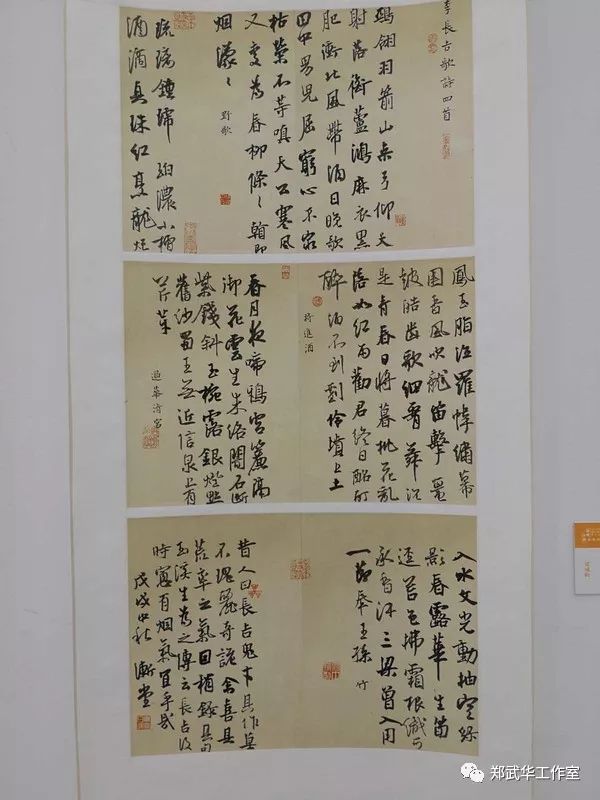 李長吉歌詩四首
鵶翎羽箭山桑弓仰天
射落銜蘆鴻麻衣黑
肥衝北風帶酒日晚歌
田中男兒屈窮心不窮
枯榮不等嗔天公寒風
又變為春柳條〻看即
烟濛〻
野歌
琉璃鍾琥珀濃小槽
酒滴真珠紅烹龍炮
鳳玉脂泣羅幃繡幕
圍香風吹龍笛擊鼉
鼓皓齒歌細腰舞況
是青春日將暮桃花亂
落如紅雨勸君終日酩酊
醉酒不到劉伶墳上土
將進酒
春月夜啼鴉宮簾隔
御花雲生朱絡闇石斷
紫錢斜玉椀露銀燈點
舊沙蜀王無近信泉上有
芹芽
過華清宮
入水文光動抽空綠
影春露華生筍
逕苔色拂霜根織可
承香汗三梁曾入用
一節奉王孫 竹
昔人曰長吉鬼才其作無
不瑰麗奇詭余喜其
荒率之氣因摘錄其句
玉溪生為之傳云長吉沒
時窗有烟氣宜乎哉
戊戌中秋 漸堂
郑武华工作室